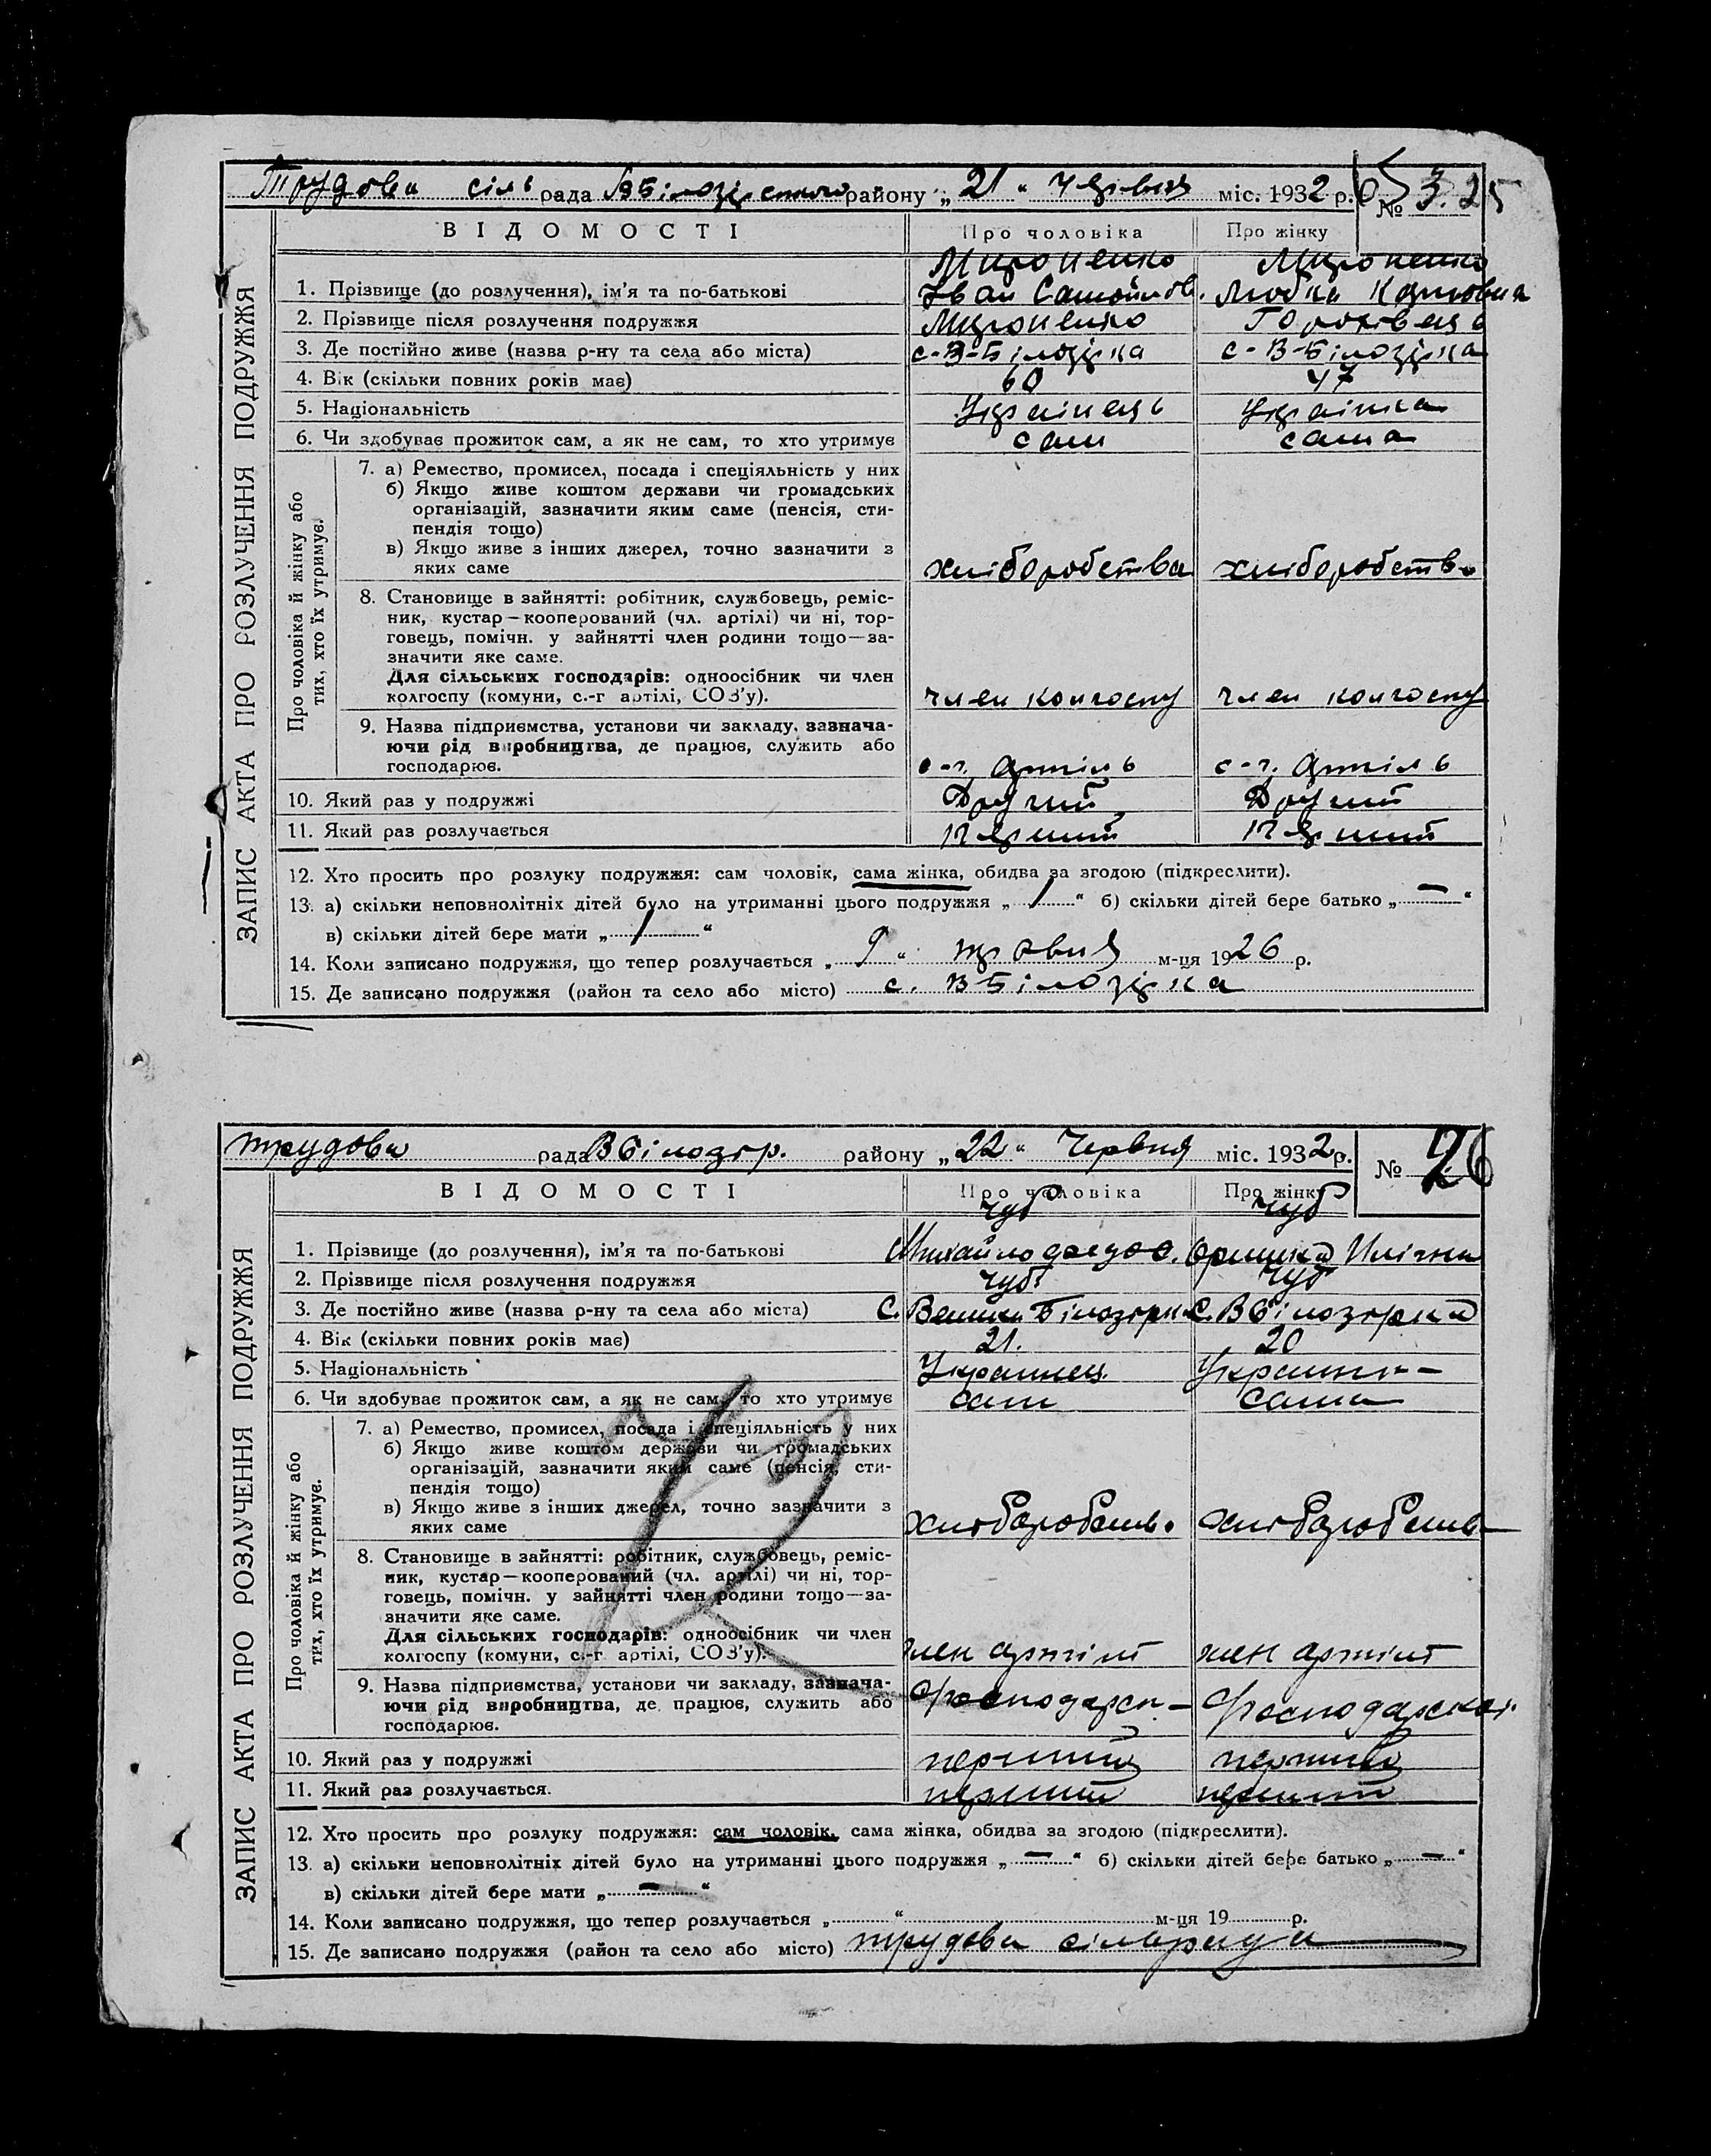 Трудова сіль рада В Білозірського району „21“ Червня міс. 1932 р. № 25
ВІДОМОСТІ Про чоловіка Про жінку
Мироненко Мироненко
1. Прізвище (до розлучення), ім'я та по-батькові Іван Самойлов. Любка Карповна
2. Прізвище після розлучення подружжя Мироненко
3. Де постійно живе (назва р-ну та села або міста) с-В-Білозірка с-В-Білозірка
4. Вік (скільки повних років має) 60 47
5. Національність Українець Українка
6. Чи здобуває прожиток сам, а як не сам, то хто утримує сам сама
ЗАПИС АКТА ПРО РОЗЛУЧЕННЯ ПОДРУЖЖЯ
Про чоловіка й жінку або
тих, хто їх утримує.
7. а) Ремество, промисел, посада і спеціяльність у них
б) Якщо живе коштом держави чи громадських
організацій, зазначити яким саме (пенсія, сти-
пендія тощо)
в) Якщо живе з інших джерел, точно зазначити з
яких саме хліборобства хліборобство
8. Становище в зайнятті: робітник, службовець, реміс-
ник, кустар—кооперований (чл. артілі) чи ні, тор-
говець, помічн. у зайнятті член родини тощо—за-
значити яке саме.
Для сільських господарів: одноосібник чи член
колгоспу (комуни, с.-г артілі, СОЗ'у). член колгоспу член колгоспу
9. Назва підприємства, установи чи закладу, зазнача-
ючи рід виробництва, де працює, служить або
господарює. с-г. артіль с-г. артіль
10. Який раз у подружжі Другий Другий
11. Який раз розлучається перший перший
12. Хто просить про розлуку подружжя: сам чоловік, сама жінка, обидва за згодою (підкреслити).
13. а) скільки неповнолітніх дітей було на утриманні цього подружжя „ / “ б) скільки дітей бере батько „ — “
в) скільки дітей бере мати „ / “
14. Коли записано подружжя, що тепер розлучається „ 9 “ травня м-ця 1926 р.
15. Де записано подружжя (район та село або місто) с. В Білозірка
трудова рада В Білозір. району „22“ Червня міс. 1932 р. № 26
ВІДОМОСТІ Про чоловіка Про жінку
Чуб Чуб
1. Прізвище (до розлучення), ім'я та по-батькові Михайло Федос. Оришка Иллічна
2. Прізвище після розлучення подружжя Чуб Чуб
3. Де постійно живе (назва р-ну та села або міста) С. Велика Білозірка С. В Білозірка
4. Вік (скільки повних років має) 21. 20
5. Національність Украинец Украинка
6. Чи здобуває прожиток сам, а як не сам, то хто утримує сам сама
ЗАПИС АКТА ПРО РОЗЛУЧЕННЯ ПОДРУЖЖЯ
Про чоловіка й жінку або
тих, хто їх утримує.
7. а) Ремество, промисел, посада і спеціяльність у них
б) Якщо живе коштом держави чи громадських
організацій, зазначити яким саме (пенсія, сти-
пендія тощо)
в) Якщо живе з інших джерел, точно зазначити з
яких саме хліборобств. хліборобств
8. Становище в зайнятті: робітник, службовець, реміс-
ник, кустар—кооперований (чл. артілі) чи ні, тор-
говець, помічн. у зайнятті член родини тощо—за-
значити яке саме.
Для сільських господарів: одноосібник чи член
колгоспу (комуни, с.-г артілі, СОЗ'у). член артілі член артілі
9. Назва підприємства, установи чи закладу, зазнача-
ючи рід виробництва, де працює, служить або
господарює.
10. Який раз у подружжі перший перший
11. Який раз розлучається. перший перший
12. Хто просить про розлуку подружжя: сам чоловік, сама жінка, обидва за згодою (підкреслити).
13. а) скільки неповнолітніх дітей було на утриманні цього подружжя „ — “ б) скільки дітей бере батько „ — “
в) скільки дітей бере мати „ — “
14. Коли записано подружжя, що тепер розлучається „ “ м-ця 19 р.
15. Де записано подружжя (район та село або місто) трудова сільрада